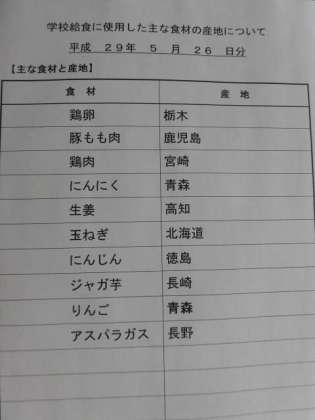 学校給食に使用した主な食材の産地について
平成 29年 5 月 26 日分
【主な食材と産地】
食 材 産 地
鶏卵 栃木
豚もも肉 鹿児島
鶏肉 宮崎
にんにく 青森
生姜 高知
玉ねぎ 北海道
にんじん 徳島
ジャガ芋 長崎
りんご 青森
アスパラガス 長野